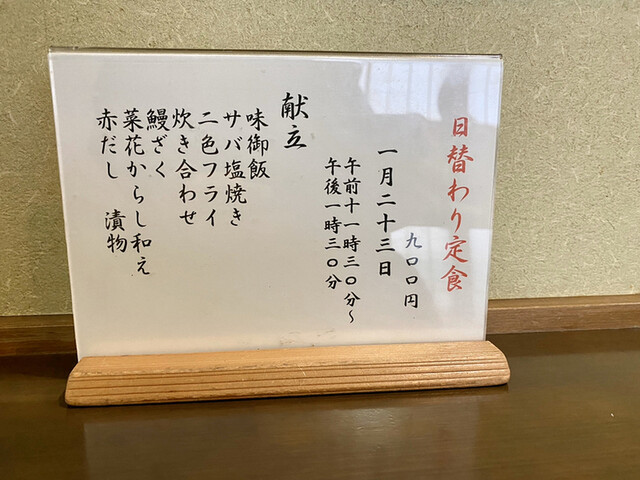 日替わり定食
九〇〇円
一月二十三日
午前十一時三〇分～
午後一時三〇分
献立
味御飯
サバ塩焼き
二色フライ
炊き合わせ
鰻ざく
菜花からし和え
赤だし 漬物